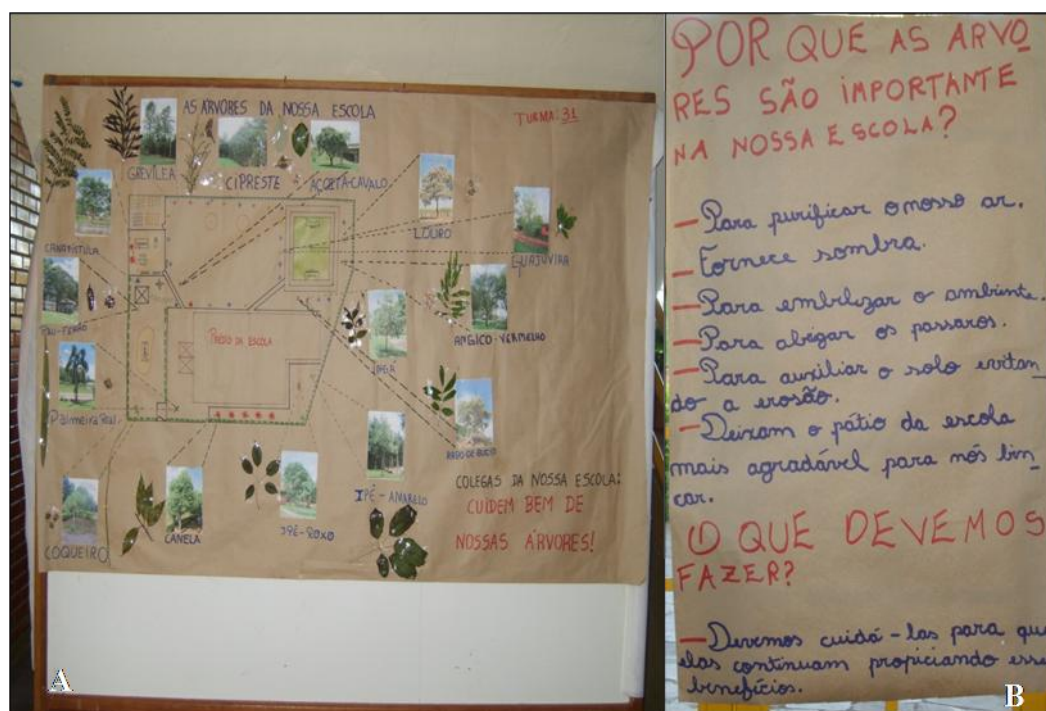 AS ÁRVORES DA NOSSA ESCOLA
TURMA: 31
GREVÍLEA
CIPRESTE
AÇOITA-CAVALO
LOURO
GUAJUVIRA
CANAFÍSTULA
PAU-FERRO
PRÉDIO DA ESCOLA
ANGICO-VERMELHO
INGÁ
Palmeira Real
RABO-DE-BUGIO
COQUEIRO
CANELA
IPÊ-ROXO
IPÊ-AMARELO
COLEGAS DA NOSSA ESCOLA:
CUIDEM BEM DE
NOSSAS ÁRVORES!
A
POR QUE AS ARVO
RES SÃO IMPORTANTE
NA NOSSA ESCOLA?
— Para purificar o nosso ar.
— Fornece sombra.
— Para embelezar o ambiente.
— Para abrigar os passaros.
— Para auxiliar o solo evitan_
do a erosão.
— Deixam o pátio da escola
mais agradável para nós brin_
car.
O QUE DEVEMOS
FAZER?
— Devemos cuidá-las para que
elas continuam propiciando esse
benefícios.
B